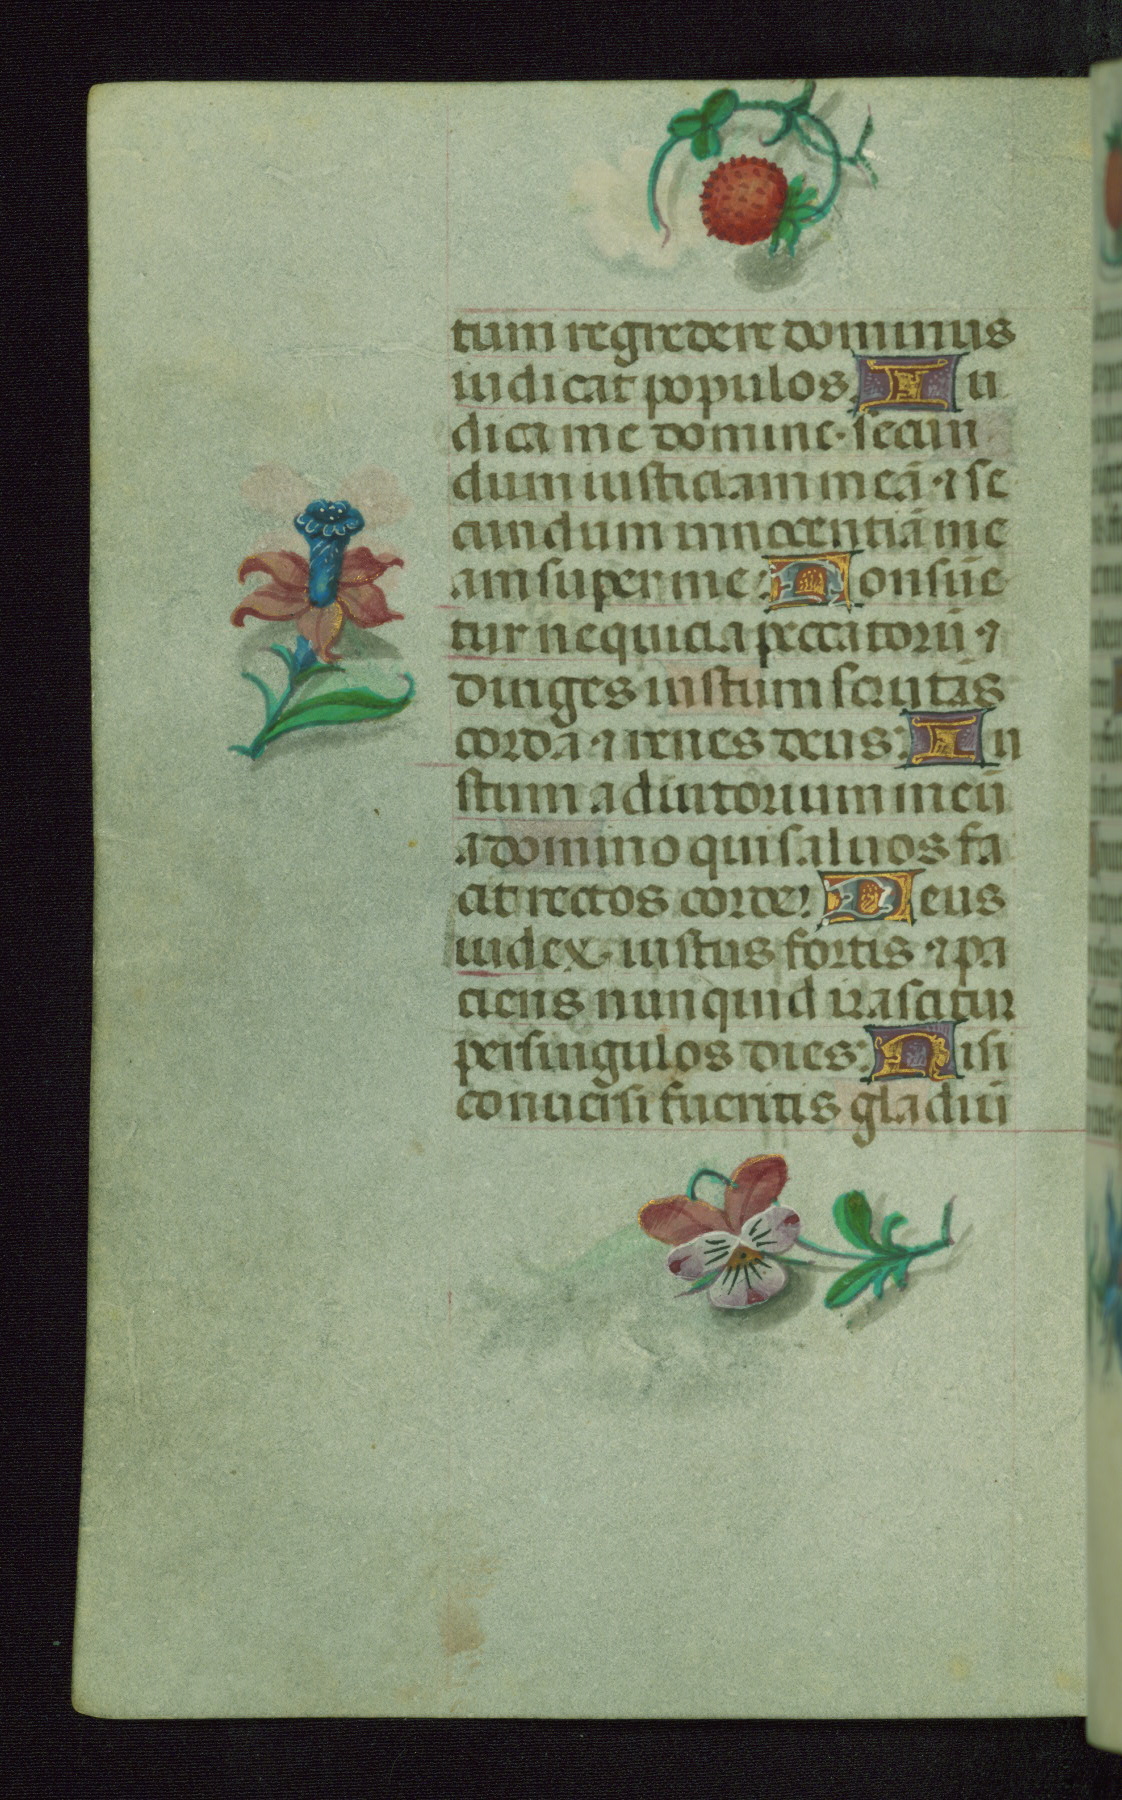 tum regredere dominus
iudicat populos. Iu
dica me domine. secun
dum iusticiam meā. ⁊ se
cundum innocentiā me
am super me. Consūe
tur nequicia peccatorū. ⁊
diriges iustum scrutās
corda ⁊ renes deus. Iu
stum adiutorium meū
a domino qui saluos fa
cit rectos corde. Deus
iudex. iustus fortis ⁊ pa
ciens nunquid irascitur
per singulos dies. Nisi
conuersi fueritis gladiū